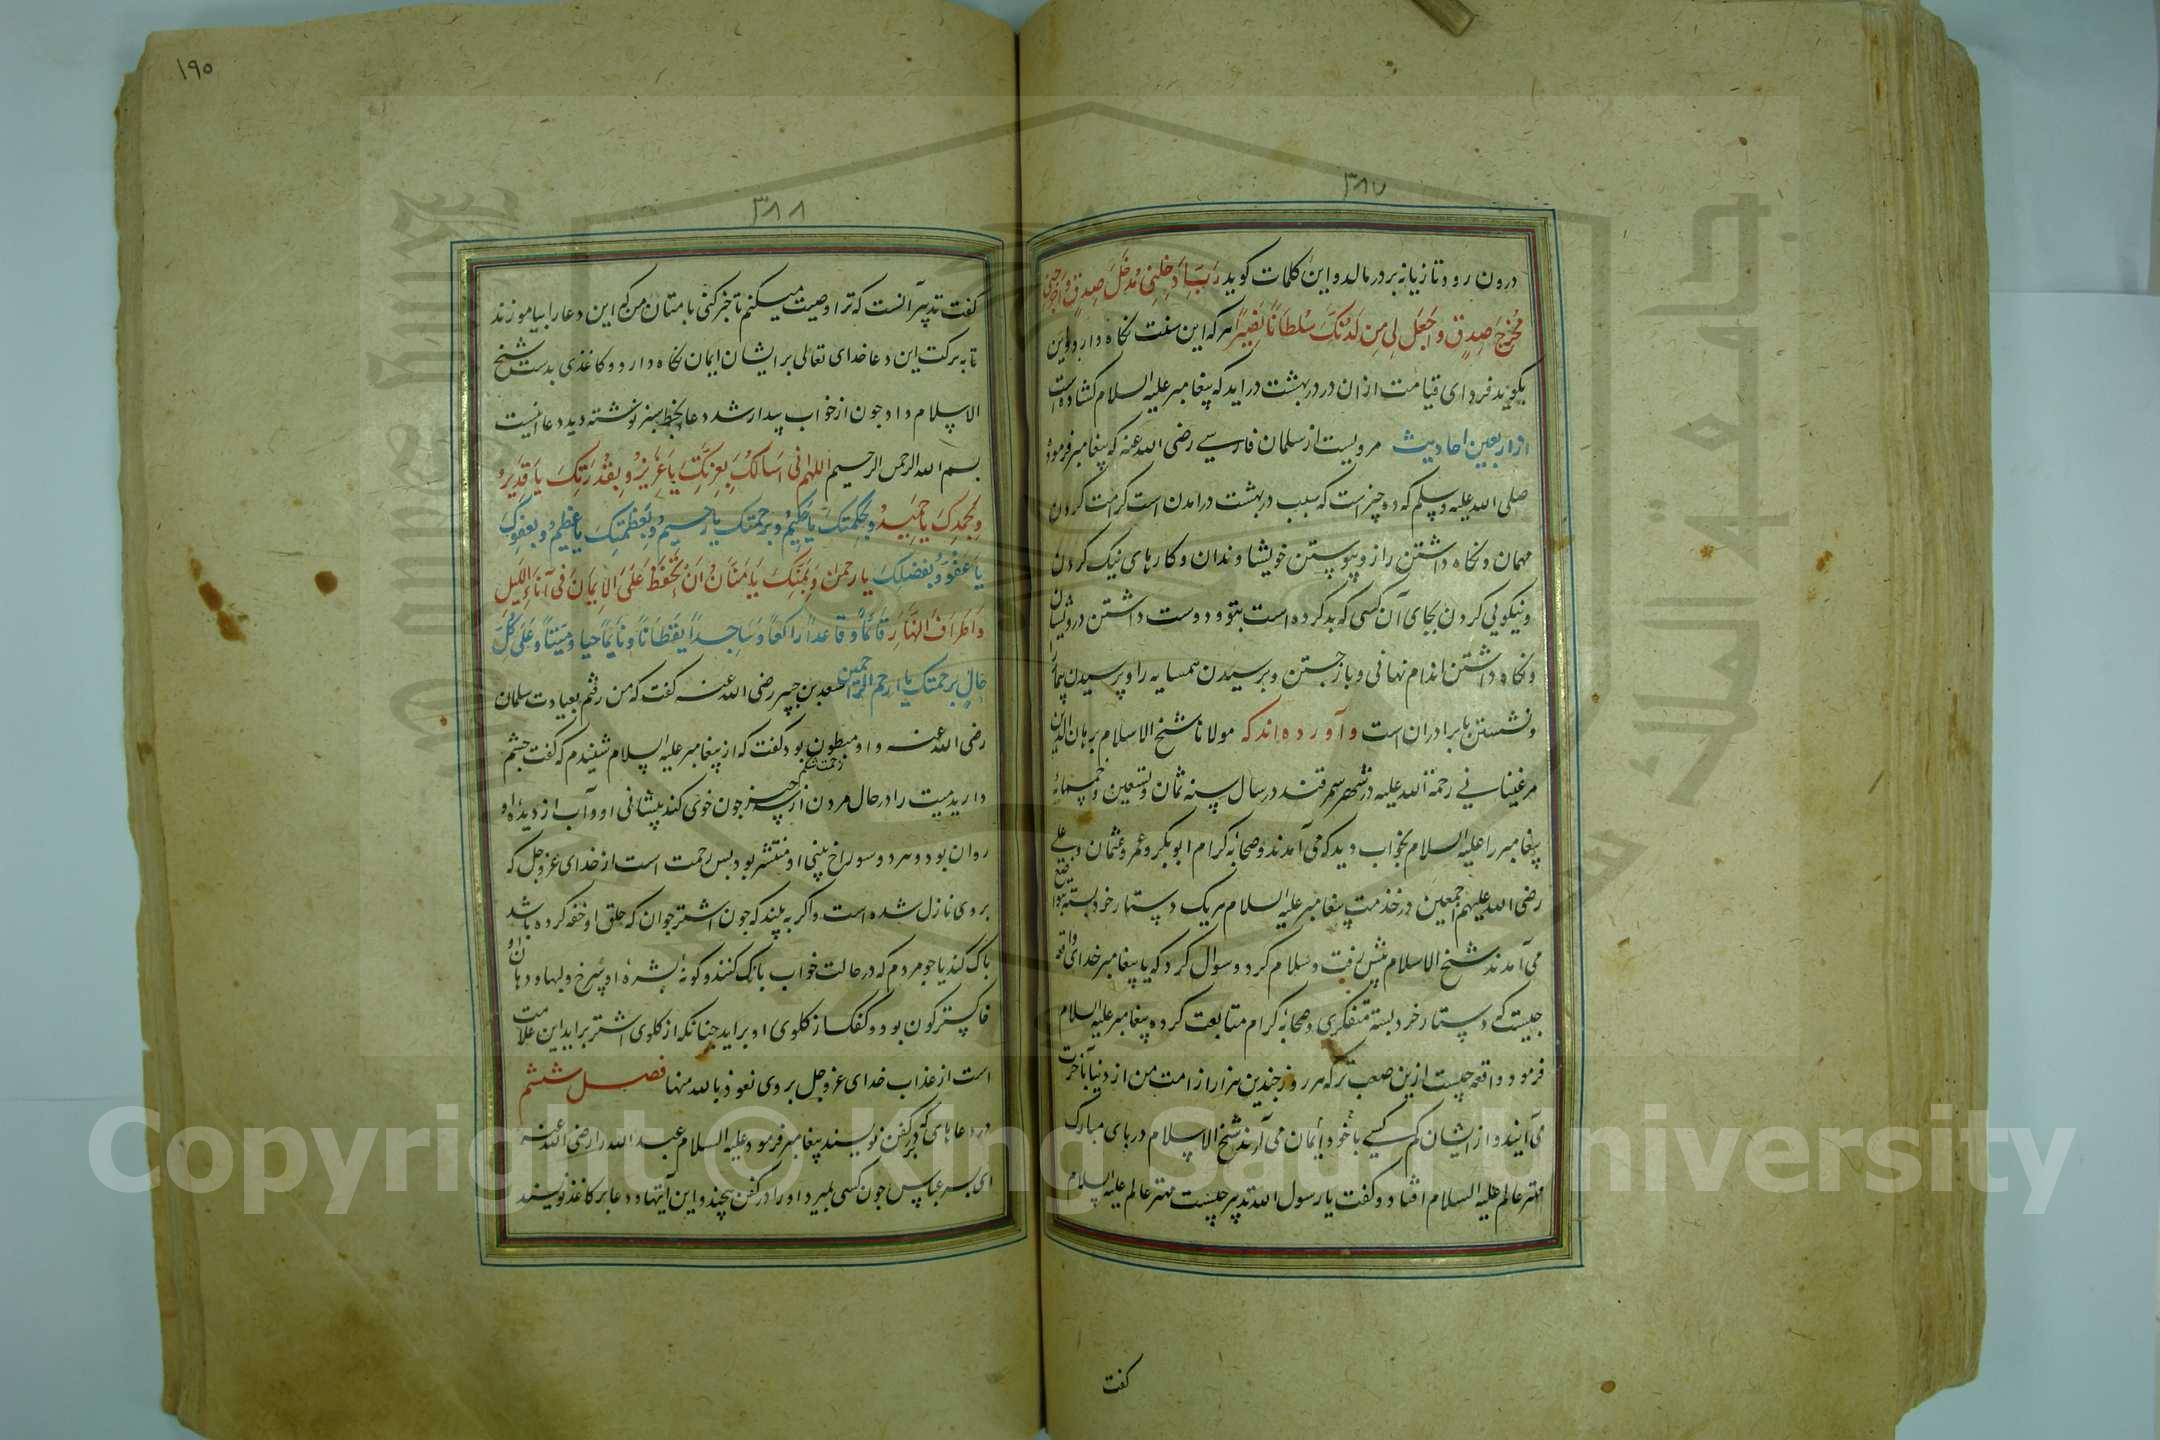 ۳۸۷
درون رود تازیانه بر در مالد و این کلمات کوید رَبِّ اَدخِلنِی مُدخَلَ صِدقٍ وَاَخرِجنِی
مُخرَجَ صِدقٍ وَاجعَل لِی مِن لَدُنکَ سُلطَانًا نَصِیرًا هر که این سنت نکاه دارد و این
بکوید فردای قیامت ازان در در بهشت دراید که پیغامبر علیه السلام کشاده است
از اربعین احادیث مرویست از سلمان فارسی رضی الله عنه که پیغامبر فرموده
صلی الله علیه و سلم که ده چیز است که سبب در بهشت درامدن است کرامت کردن
مهمان و نکاه داشتن راز و پیوستن خویشاوندان و کارهای نیک کردن
و نیکویی کردن بجای آن کسی که بد کرده است بتو و دوست داشتن درویشان
و نکاه داشتن اندام نهانی و باز جستن و برسیدن همسایه را و پرسیدن بیمار را
و نشستن با برادران است و آورده اند که مولانا شیخ الاسلام برهان الدین
مرغینانی رحمة الله علیه در شهر سمرقند در سال سنه ثمان و تسعین و خمسمایه
پیغامبر را علیه السلام بخواب دید که می آمدند و صحابه کرام ابوبکر و عمر و عثمان و علی
رضی الله علیهم اجمعین در خدمت پیغامبر علیه السلام هر یک دستار خرد بسته بتواضع
می آمدند شیخ الاسلام پیش رفت و سلام کرد و سوال کرد که یا پیغامبر خدای واقعه
جیست که دستار خرد بسته متفکری و صحابه کرام متابعت کرده پیغامبر علیه السلام
فرمود واقعه جیست ازین صعب تر که هر روز جندین هزار از امت من از دنیا بآخرت
می آیند و از ایشان کم کسی با خود ایمان می آرند شیخ الاسلام در پای مبارک
مهتر عالم علیه السلام افتاد و کفت یا رسول الله تدبیر جیست مهتر عالم علیه السلام
کفت
۱۹۵
۳۸۸
کفت تدبیر آنست که ترا وصیت میکنم تا خبر کنی با متان من که این دعا را بیاموزند
تا به برکت این دعا خدای تعالی بر ایشان ایمان نکاه دارد و کاغذی بدست شیخ
الاسلام داد جون از خواب بیدار شد دعا بخط سبز نوشته دید دعا اینست
بسم الله الرحمن الرحیم اللهم انی اَسالُکَ بِعِزَّتِکَ یَا عَزِیزُ وَ بِقُدرَتِکَ یَا قَدِیرُ
وَ بِحَمدِکَ یَا حَمِیدُ وَ بِحِکمَتِکَ یَا حَکِیمُ وَ بِرَحمَتِکَ یَا رَحِیمُ وَ بِعَظَمَتِکَ یَا عَظِیمُ وَ بِعَفوِکَ
یَا عَفُوُّ وَ بِفَضلِکَ یَا رَحمنُ وَ بِمَنِّکَ یَا مَنَّانُ اَن تَحفَظَ عَلَیَّ الاِیمَانَ فِی آنَاءِ اللَّیلِ
وَ اَطرَافَ النَّهَارِ قَائمًا وَ قَاعدًا رَاکعًا وَ سَاجدًا یَقظَانًا وَ نَایمًا حیا و مَیتًا وَ عَلَی کُلِّ
حَالٍ برحمتک یا ارحم الراحمین سعد بن جبیر رضی الله عنه کفت که من رفتم بعیادت سلمان
رضی الله عنه و او مبطون بود کفت که از پیغامبر علیه السلام شنیدم که کفت جشم
زحمت شکم
دارید میت را در حال مردن از سه جیز جون خوی کند پیشانی او و آب از دیدۀ او
روان بود و هر دو سوراخ بینی او منتشر بود بس رحمت است از خدای عز و جل که
بر وی نازل شده است و اکر به بیند که جون اشتر جوان که حلق او خفه کرده باشد
بانک کند یا جو مردم که در حالت خواب بانک کنند و کونۀ بشرۀ او سرخ و لبها و دهان او
خاکستر کون بود و کفک از کلوی او براید جنانکه از کلوی اشتر براید این علامت
است از عذاب خدای عز و جل بر وی نعوذ بالله منها فصل ششم
در دعاهای که در کفن نویسند پیغامبر فرمود علیه السلام عبد الله را رضی الله عنه
ای بسر عباس جون کسی بمیرد او را در کفن بیجند و این آیتها و دعا بر کاغذ نویسند
Copyright © King Saud University